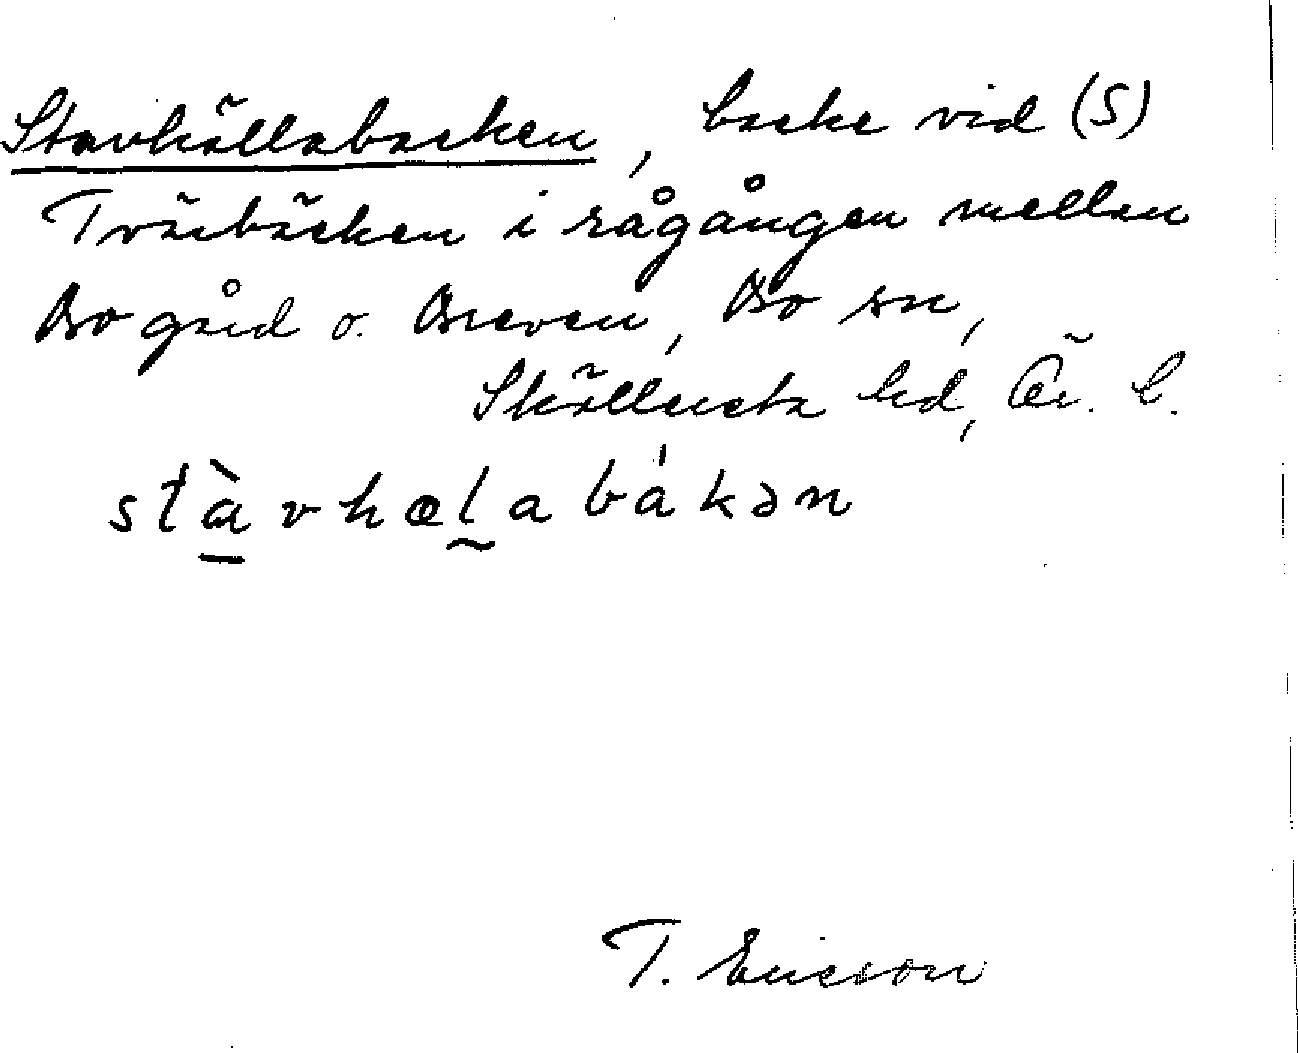 Stavhällabacken, backe vid (S)
Tvärbäcken i rågången mellan
Bo gård o. Breven, Bo sn,
Skyllersta hd, Ör. l.
stàvhælabákən
T. Ericson